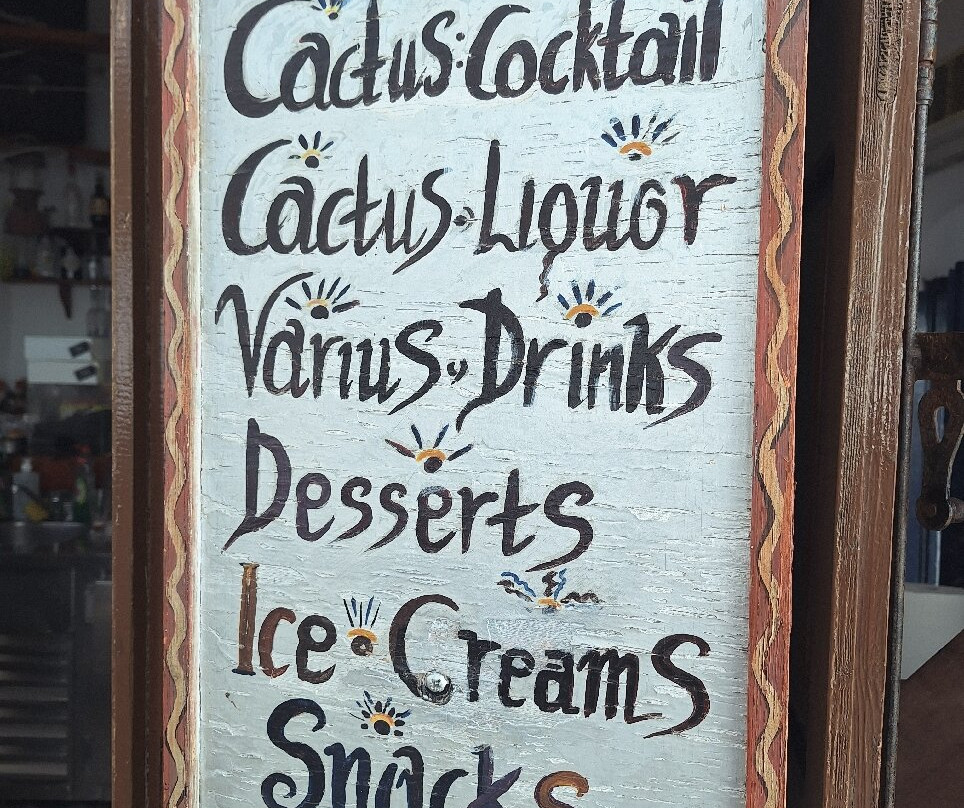 Cactus·Cocktail
Cactus·Liquor
Varius·Drinks
Desserts
Ice·Creams
Snacks